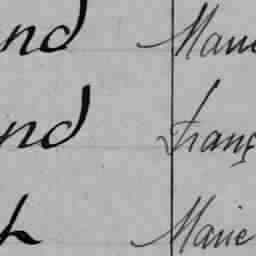 nd Marie
nd Franç
h Marie